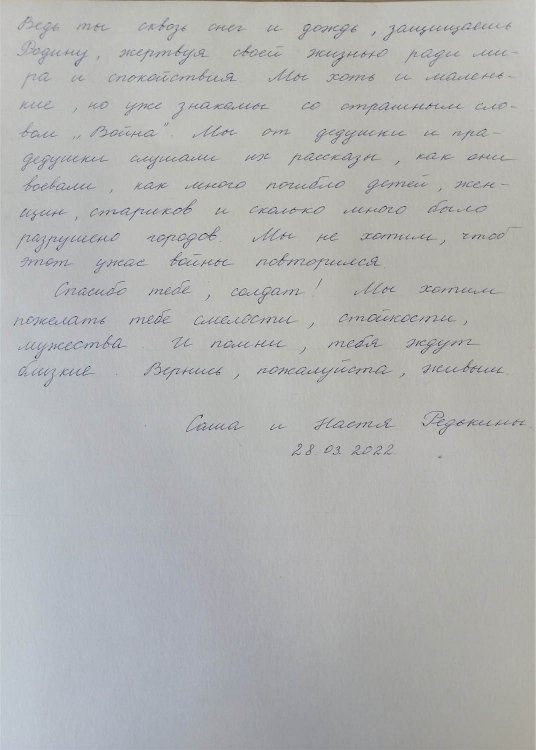 Ведь ты сквозь снег и дождь, защищаешь
Родину, жертвуя своей жизнью ради ми-
ра и спокойствия. Мы хоть и малень-
кие, но уже знакомы со страшным сло-
вом „Война". Мы от дедушки и пра-
дедушки слушали их рассказы, как они
воевали, как много погибло детей, жен-
щин, стариков и сколько много было
разрушено городов. Мы не хотим, чтоб
этот ужас войны повторился.
Спасибо тебе, солдат! Мы хотим
пожелать тебе смелости, стойкости,
мужества. И помни, тебя ждут
близкие. Вернись, пожалуйста, живым.
Саша и Настя Редькины.
28.03.2022